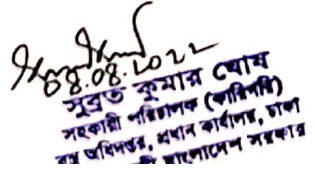 ০৪.০৪.২০২২
সুব্রত কুমার ঘোষ
সহকারী পরিচালক (কারিগরি)
বস্ত্র অধিদপ্তর, প্রধান কার্যালয়, ঢাকা
বাংলাদেশ সরকার